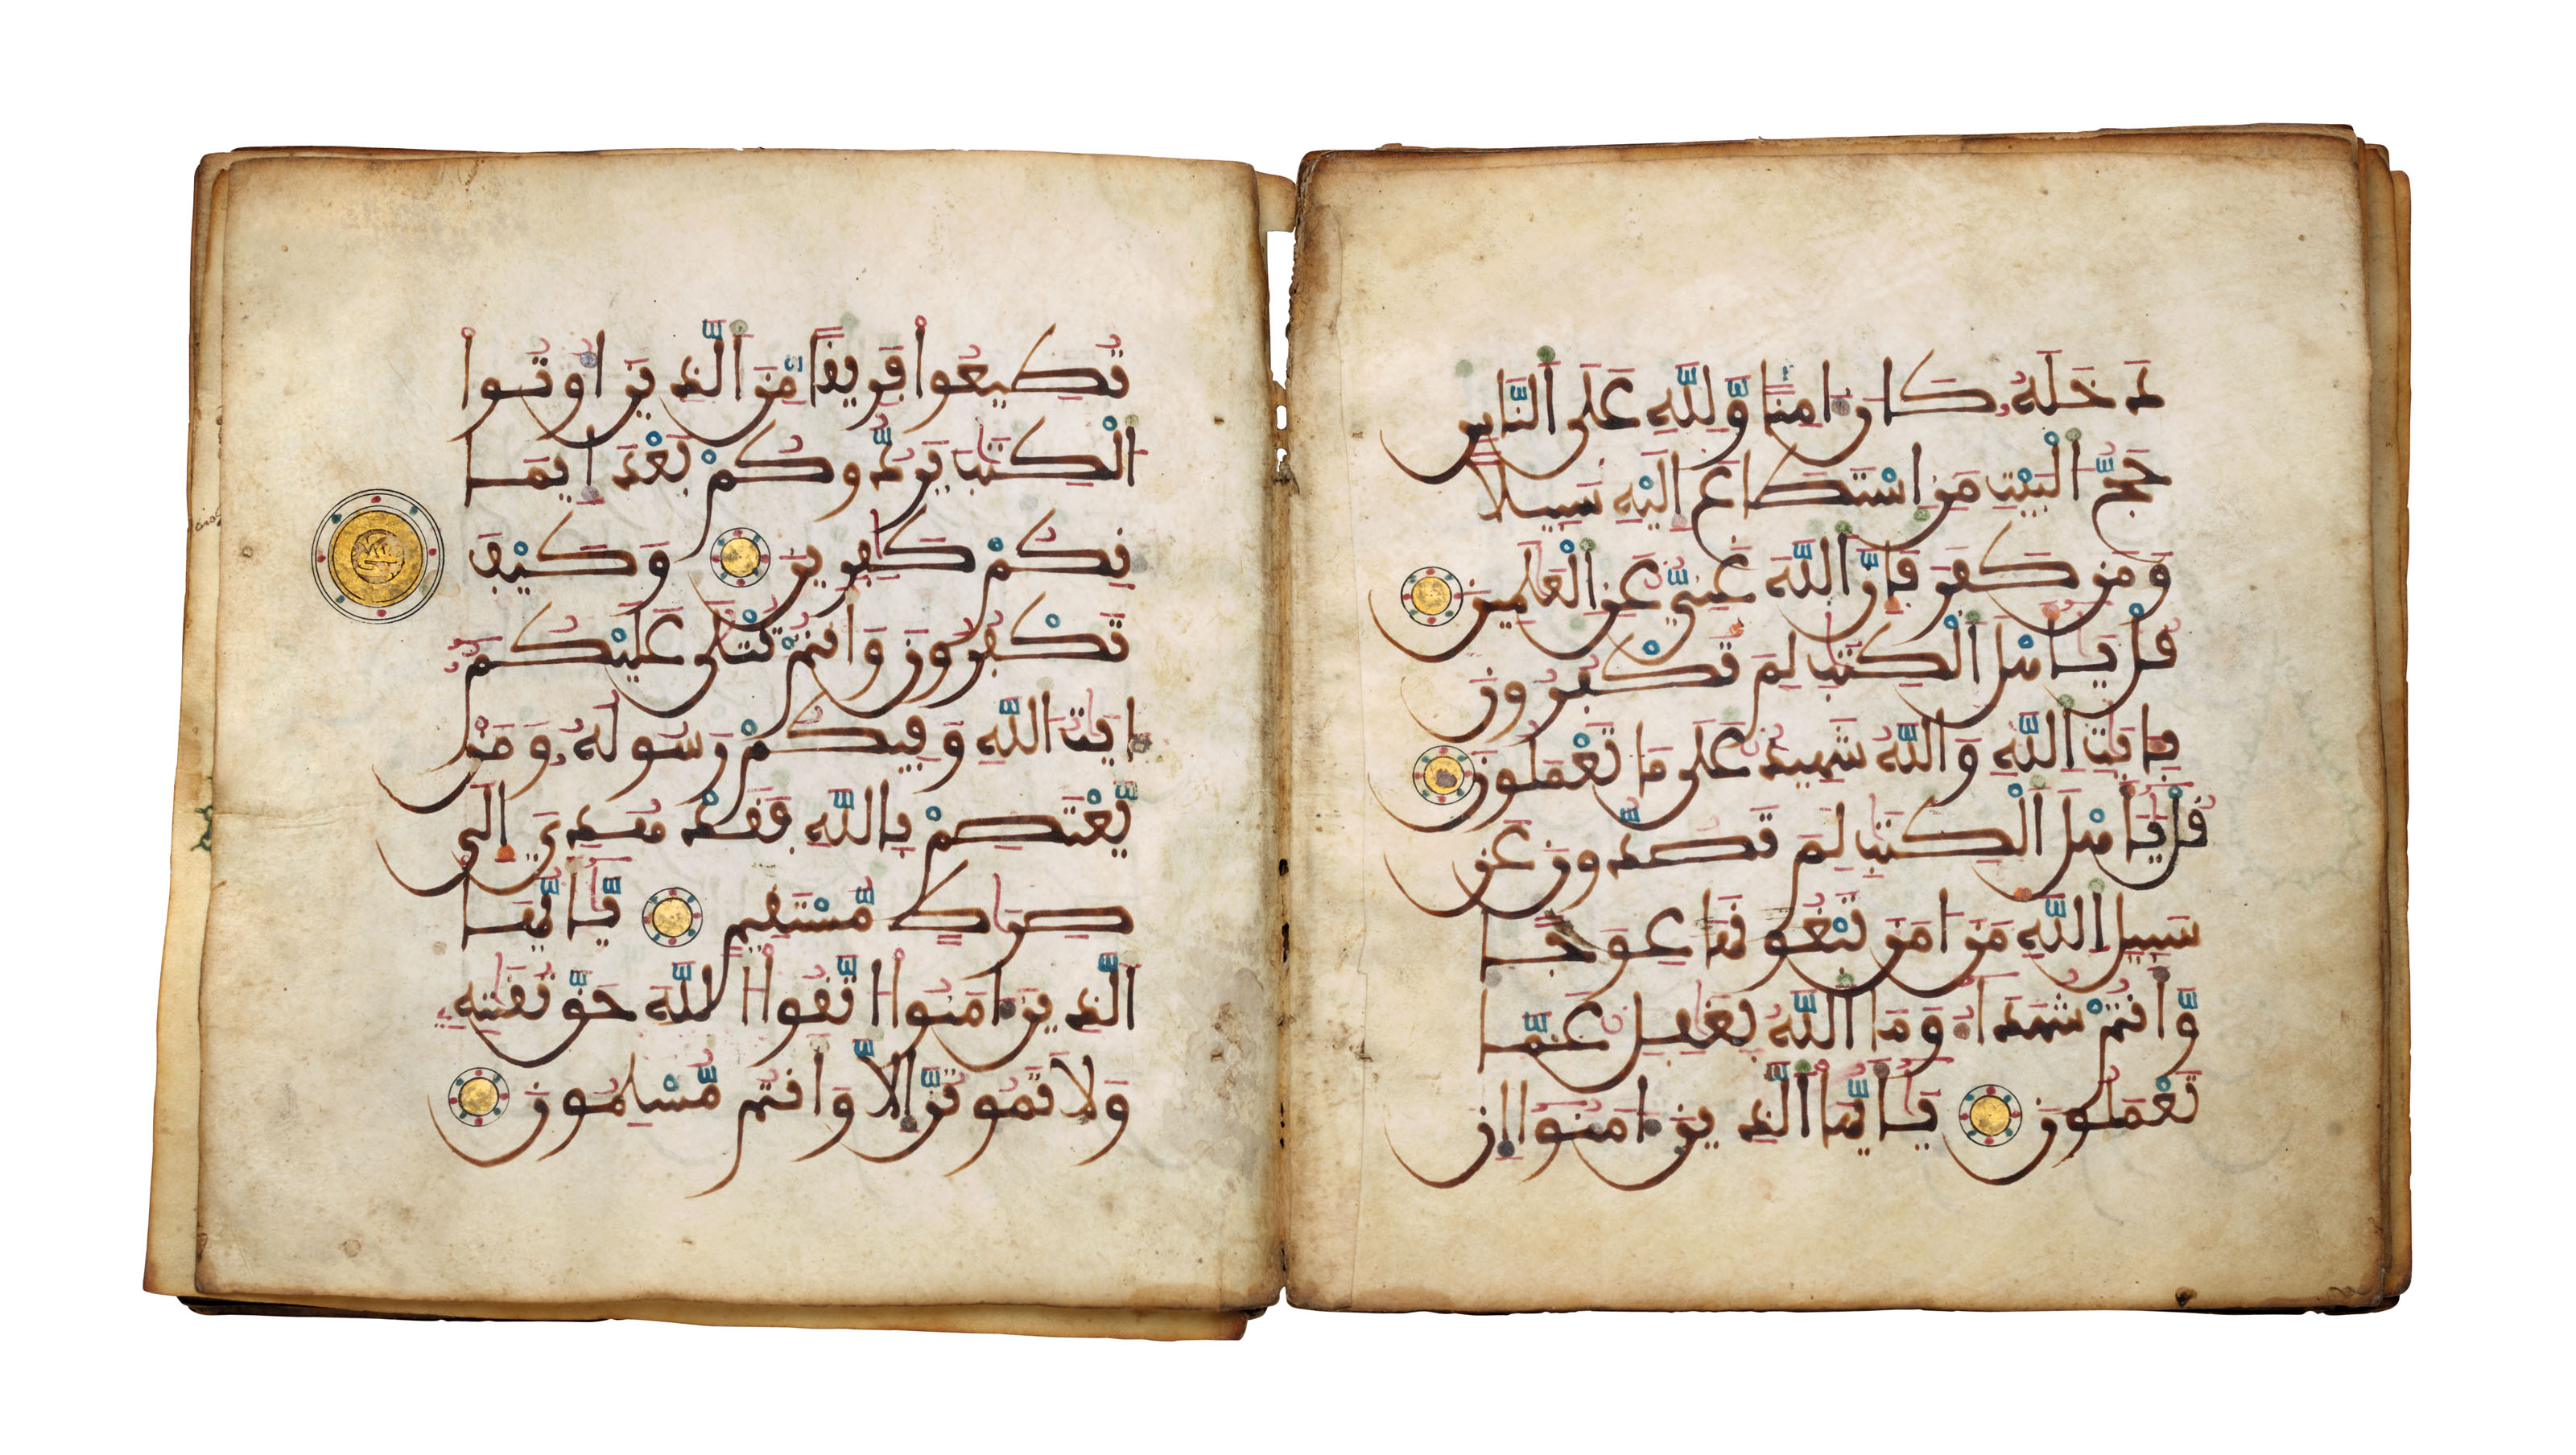 دَخَلَهُۥ كَانَ ءَامِنًا وَّلِلَّهِ عَلَى ٱلنَّاسِ
حَجُّ ٱلْبَيْتِ مَنِ ٱسْتَطَاعَ إِلَيْهِ سَبِيلًا
وَمَن كَفَرَ فَإِنَّ ٱللَّهَ غَنِيٌّ عَنِ ٱلْعَٰلَمِينَ
قُلْ يَٰٓأَهْلَ ٱلْكِتَٰبِ لِمَ تَكْفُرُونَ
بِـَٔايَٰتِ ٱللَّهِ وَٱللَّهُ شَهِيدٌ عَلَىٰ مَا تَعْمَلُونَ
قُلْ يَٰٓأَهْلَ ٱلْكِتَٰبِ لِمَ تَصُدُّونَ عَن
سَبِيلِ ٱللَّهِ مَنْ ءَامَنَ تَبْغُونَهَا عِوَجًا
وَّأَنتُمْ شُهَدَآءُ وَمَا ٱللَّهُ بِغَٰفِلٍ عَمَّا
تَعْمَلُونَ يَٰٓأَيُّهَا ٱلَّذِينَ ءَامَنُوٓا۟ إِن
تُطِيعُوا۟ فَرِيقًا مِّنَ ٱلَّذِينَ أُوتُوا۟
ٱلْكِتَٰبَ يَرُدُّوكُمْ بَعْدَ إِيمَا
نِكُمْ كَٰفِرِينَ وَكَيْفَ
تَكْفُرُونَ وَأَنتُمْ تُتْلَىٰ عَلَيْكُمُۥٓ
ءَايَٰتُ ٱللَّهِ وَفِيكُمْ رَسُولُهُۥ وَمَنْ
يَّعْتَصِمْ بِٱللَّهِ فَقَدْ هُدِيَ إِلَىٰ
صِرَٰطٍ مُّسْتَقِيمٍ يَٰٓأَيُّهَا
ٱلَّذِينَ ءَامَنُوا۟ ٱتَّقُوا۟ ٱللَّهَ حَقَّ تُقَٰتِهِۦ
وَلَا تَمُوتُنَّ إِلَّا وَأَنتُم مُّسْلِمُونَ